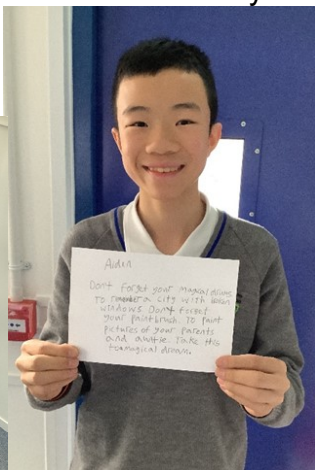 Aidan
Dont Forget your magical drawing
To remember a city with
windows Dont forget
your paintbrush. To paint
pictures of your parents
and auntie. Take this
magical